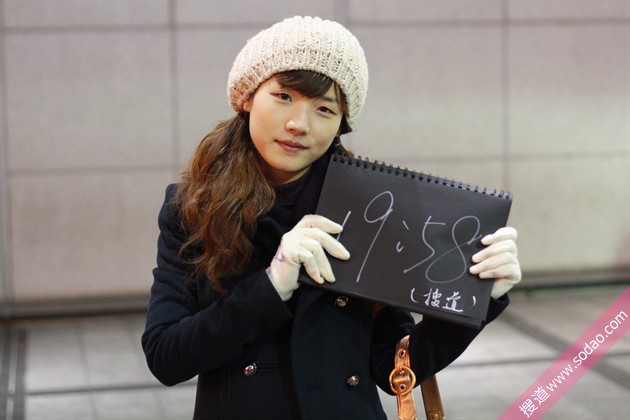 19:58
(搜道)
搜道www.sodao.com